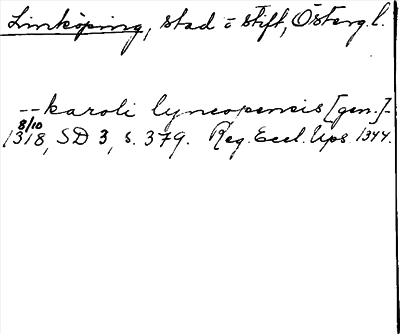 Linköping, stad o stift, Österg. l.
--karoli lyncopensis [gen.]-
8/10
1318, SD 3, s. 379. Reg. Eccl. Ups 1344.